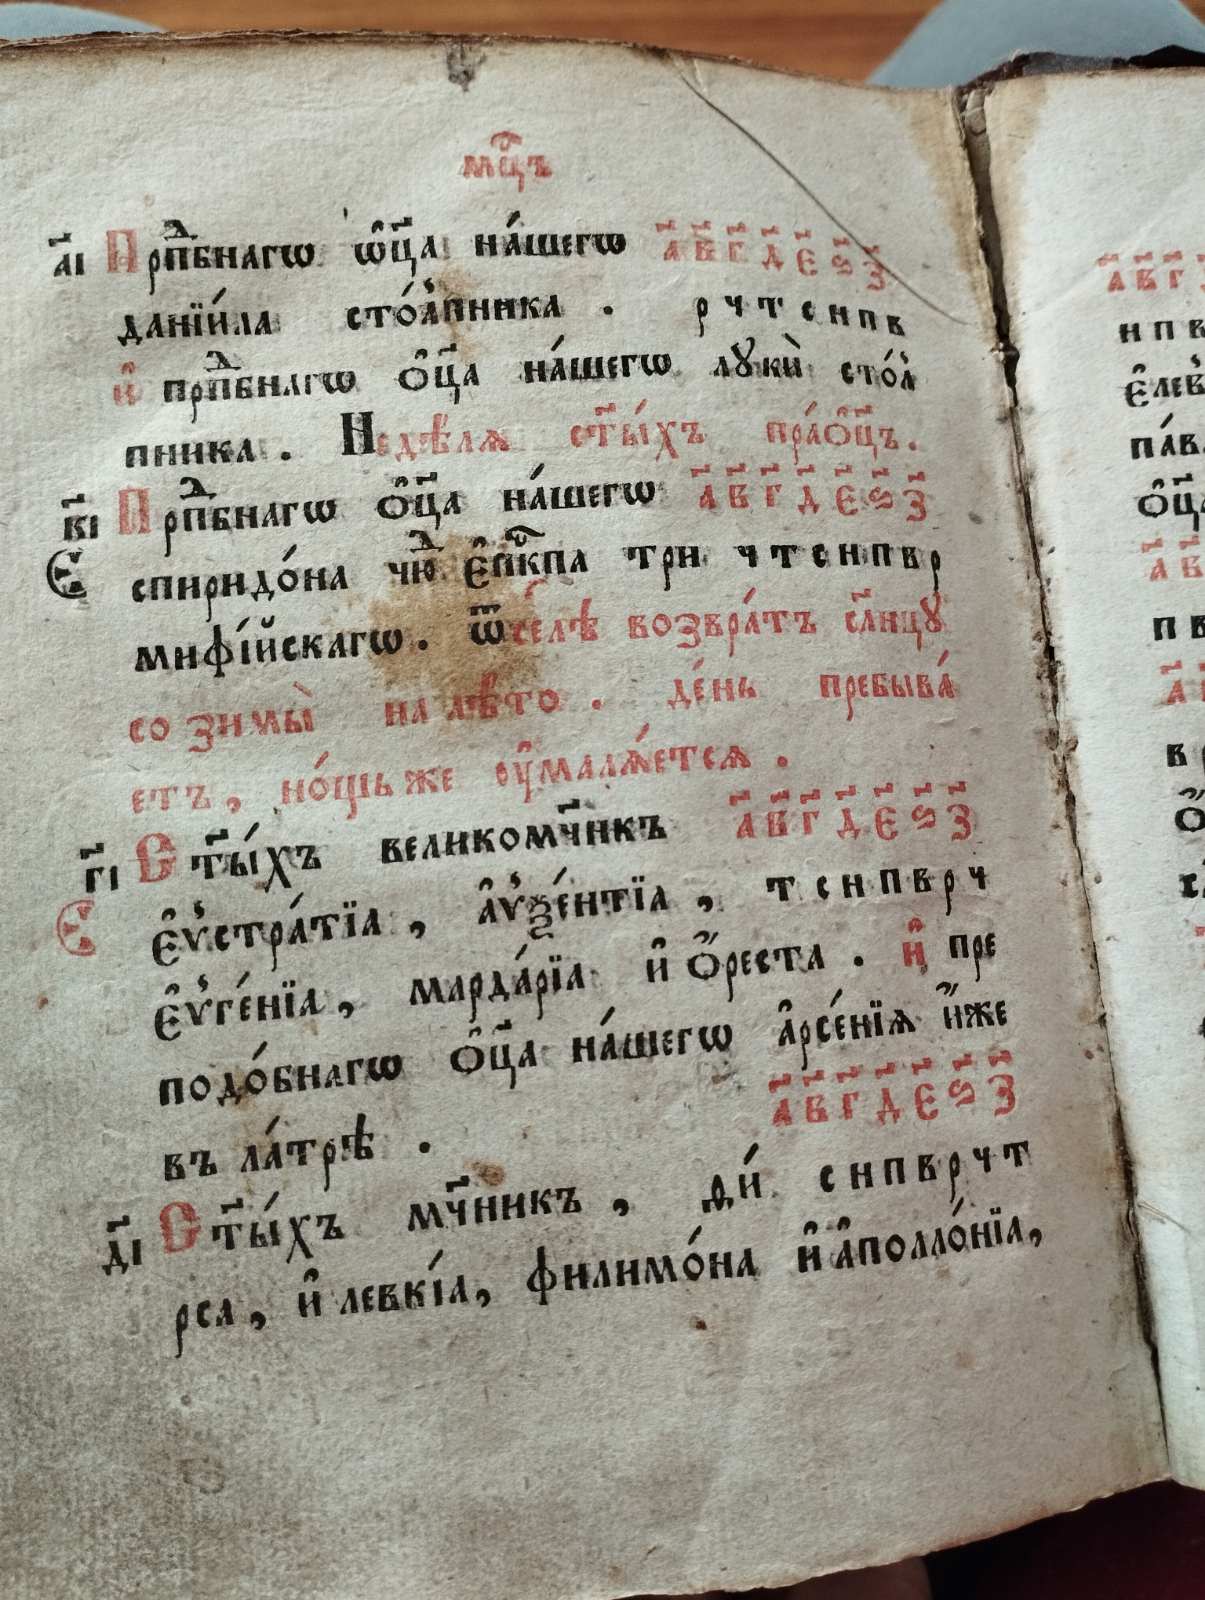 мⷭ҇цъ
а҃і Прпⷣбнагѡ ѻ҆ц҃а на́шегѡ а҃ в҃ г҃ д҃ є҃ ѕ҃ з҃
данїи́ла сто́лпника . р ч т с н п в
и҆ прпⷣбнагѡ ѻ҆ц҃а на́шегѡ лꙋкѝ сто́л
пника . Недѣ́лѧ ст҃ы́хъ пра́ѻ҆ц҃ъ.
в҃і Прпⷣбнагѡ ѻ҆ц҃а на́шегѡ а҃ в҃ г҃ д҃ є҃ ѕ҃ з҃
Є спиридо́на чюⷣ є҆пⷭ҇кпа три ч т с н п в р
мифі́йскагѡ. ѿсе́лѣ возвра́тъ сл҃нцꙋ
со зимы̀ на лѣ́то . де́нь пребыва́
етъ, но́щь же оу҆малѧ́етсѧ .
г҃і Ст҃ы́хъ великомч҃никъ а҃ в҃ г҃ д҃ є҃ ѕ҃ з҃
Є є҆ѵстра́тїа, а҆ѵѯе́нтїа, т с н п в р ч
є҆ѵге́нїа, марда́рїа и҆ ѻ҆ре́ста . и҆ пре
подо́бнагѡ ѻ҆ц҃а на́шегѡ а҆рсе́нїѧ и҆́же
въ ла́трѣ . а҃ в҃ г҃ д҃ є҃ ѕ҃ з҃
д҃і Ст҃ы́хъ мч҃никъ, ѳи́ с н п в р ч т
рса, и҆ левкі́а, филимо́на и҆ а҆полло́нїа,
а҃ в҃ г҃
н п в
п в